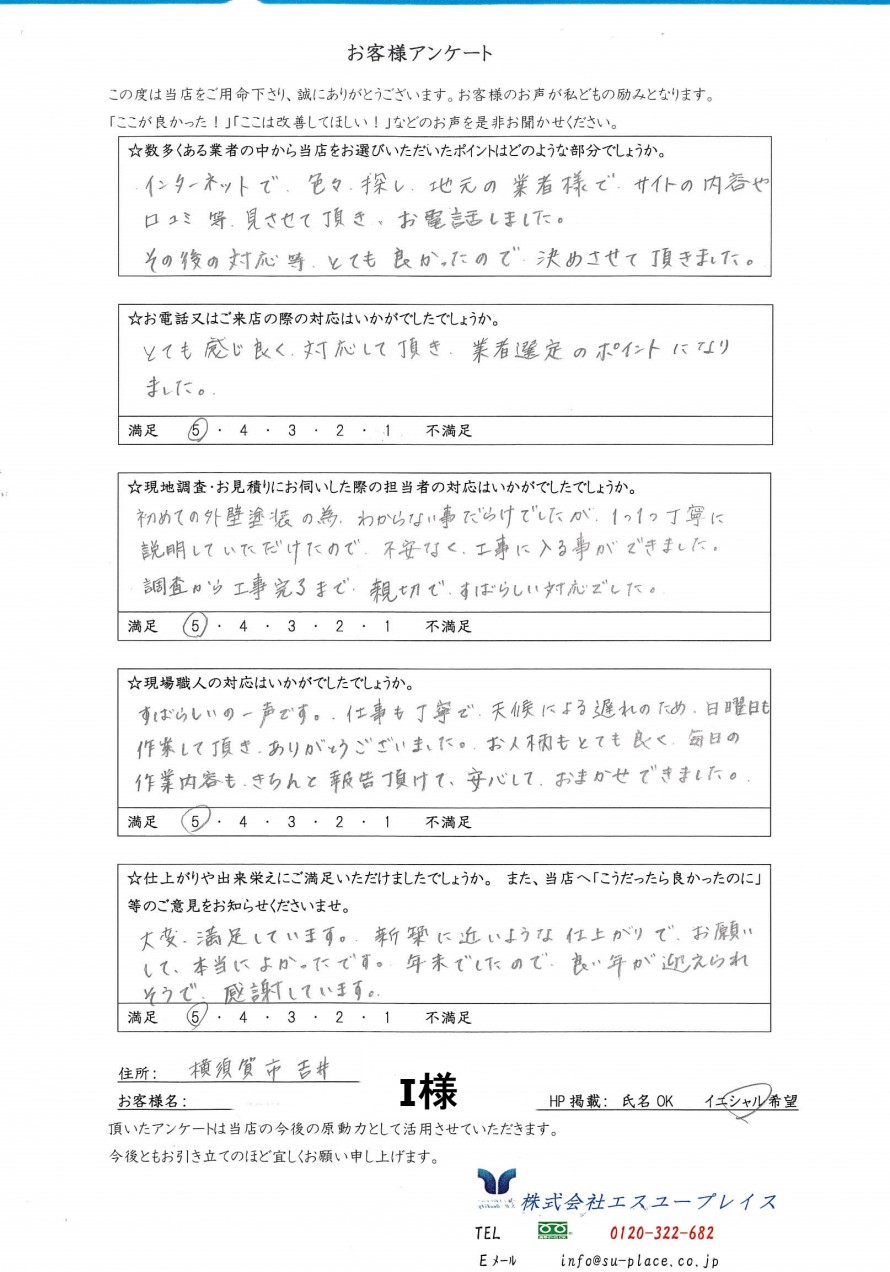 お客様アンケート
この度は当店をご用命下さり、誠にありがとうございます。お客様のお声が私どもの励みとなります。
「ここが良かった！」「ここは改善してほしい！」などのお声を是非お聞かせください。
☆数多くある業者の中から当店をお選びいただいたポイントはどのような部分でしょうか。
インターネットで、色々探し、地元の業者様で、サイトの内容や
口コミ等、見させて頂き、お電話しました。
その後の対応等、とても良かったので、決めさせて頂きました。
☆お電話又はご来店の際の対応はいかがでしたでしょうか。
とても感じ良く、対応して頂き、業者選定のポイントになり
ました。
満足 5・4・3・2・1 不満足
☆現地調査・お見積りにお伺いした際の担当者の対応はいかがでしたでしょうか。
初めての外壁塗装の為、わからない事だらけでしたが、1つ1つ丁寧に
説明していただけたので、不安なく、工事に入る事ができました。
調査から工事完了まで、親切で、すばらしい対応でした。
満足 5・4・3・2・1 不満足
☆現場職人の対応はいかがでしたでしょうか。
すばらしいの一声です。仕事も丁寧で、天候による遅れのため、日曜日も
作業して頂き、ありがとうございました。お人柄もとても良く、毎日の
作業内容も、きちんと報告頂けて、安心して、おまかせできました。
満足 5・4・3・2・1 不満足
☆仕上がりや出来栄えにご満足いただけましたでしょうか。 また、当店へ「こうだったら良かったのに」
等のご意見をお知らせくださいませ。
大変、満足しています。新築に近いような仕上がりで、お願い
して、本当によかったです。年末でしたので、良い年が迎えられ
そうで、感謝しています。
満足 5・4・3・2・1 不満足
住所： 横須賀市吉井
お客様名： I様 HP掲載： 氏名OK イニシャル希望
頂いたアンケートは当店の今後の原動力として活用させていただきます。
今後ともお引き立てのほど宜しくお願い申し上げます。
株式会社エスユープレイス
TEL 0120-322-682
Eメール info@su-place.co.jp